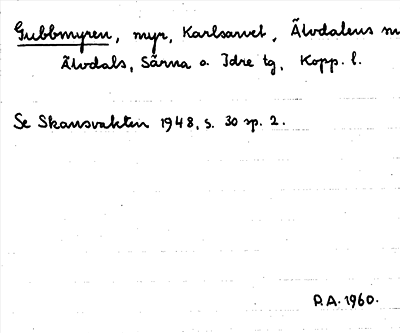 Gubbmyren, myr, Karlsarvet, Älvdalens
Älvdals, Särna o. Idre tg, Kopp. l.
Se Skansvakten 1948, s. 30 sp. 2.
P.A. 1960.